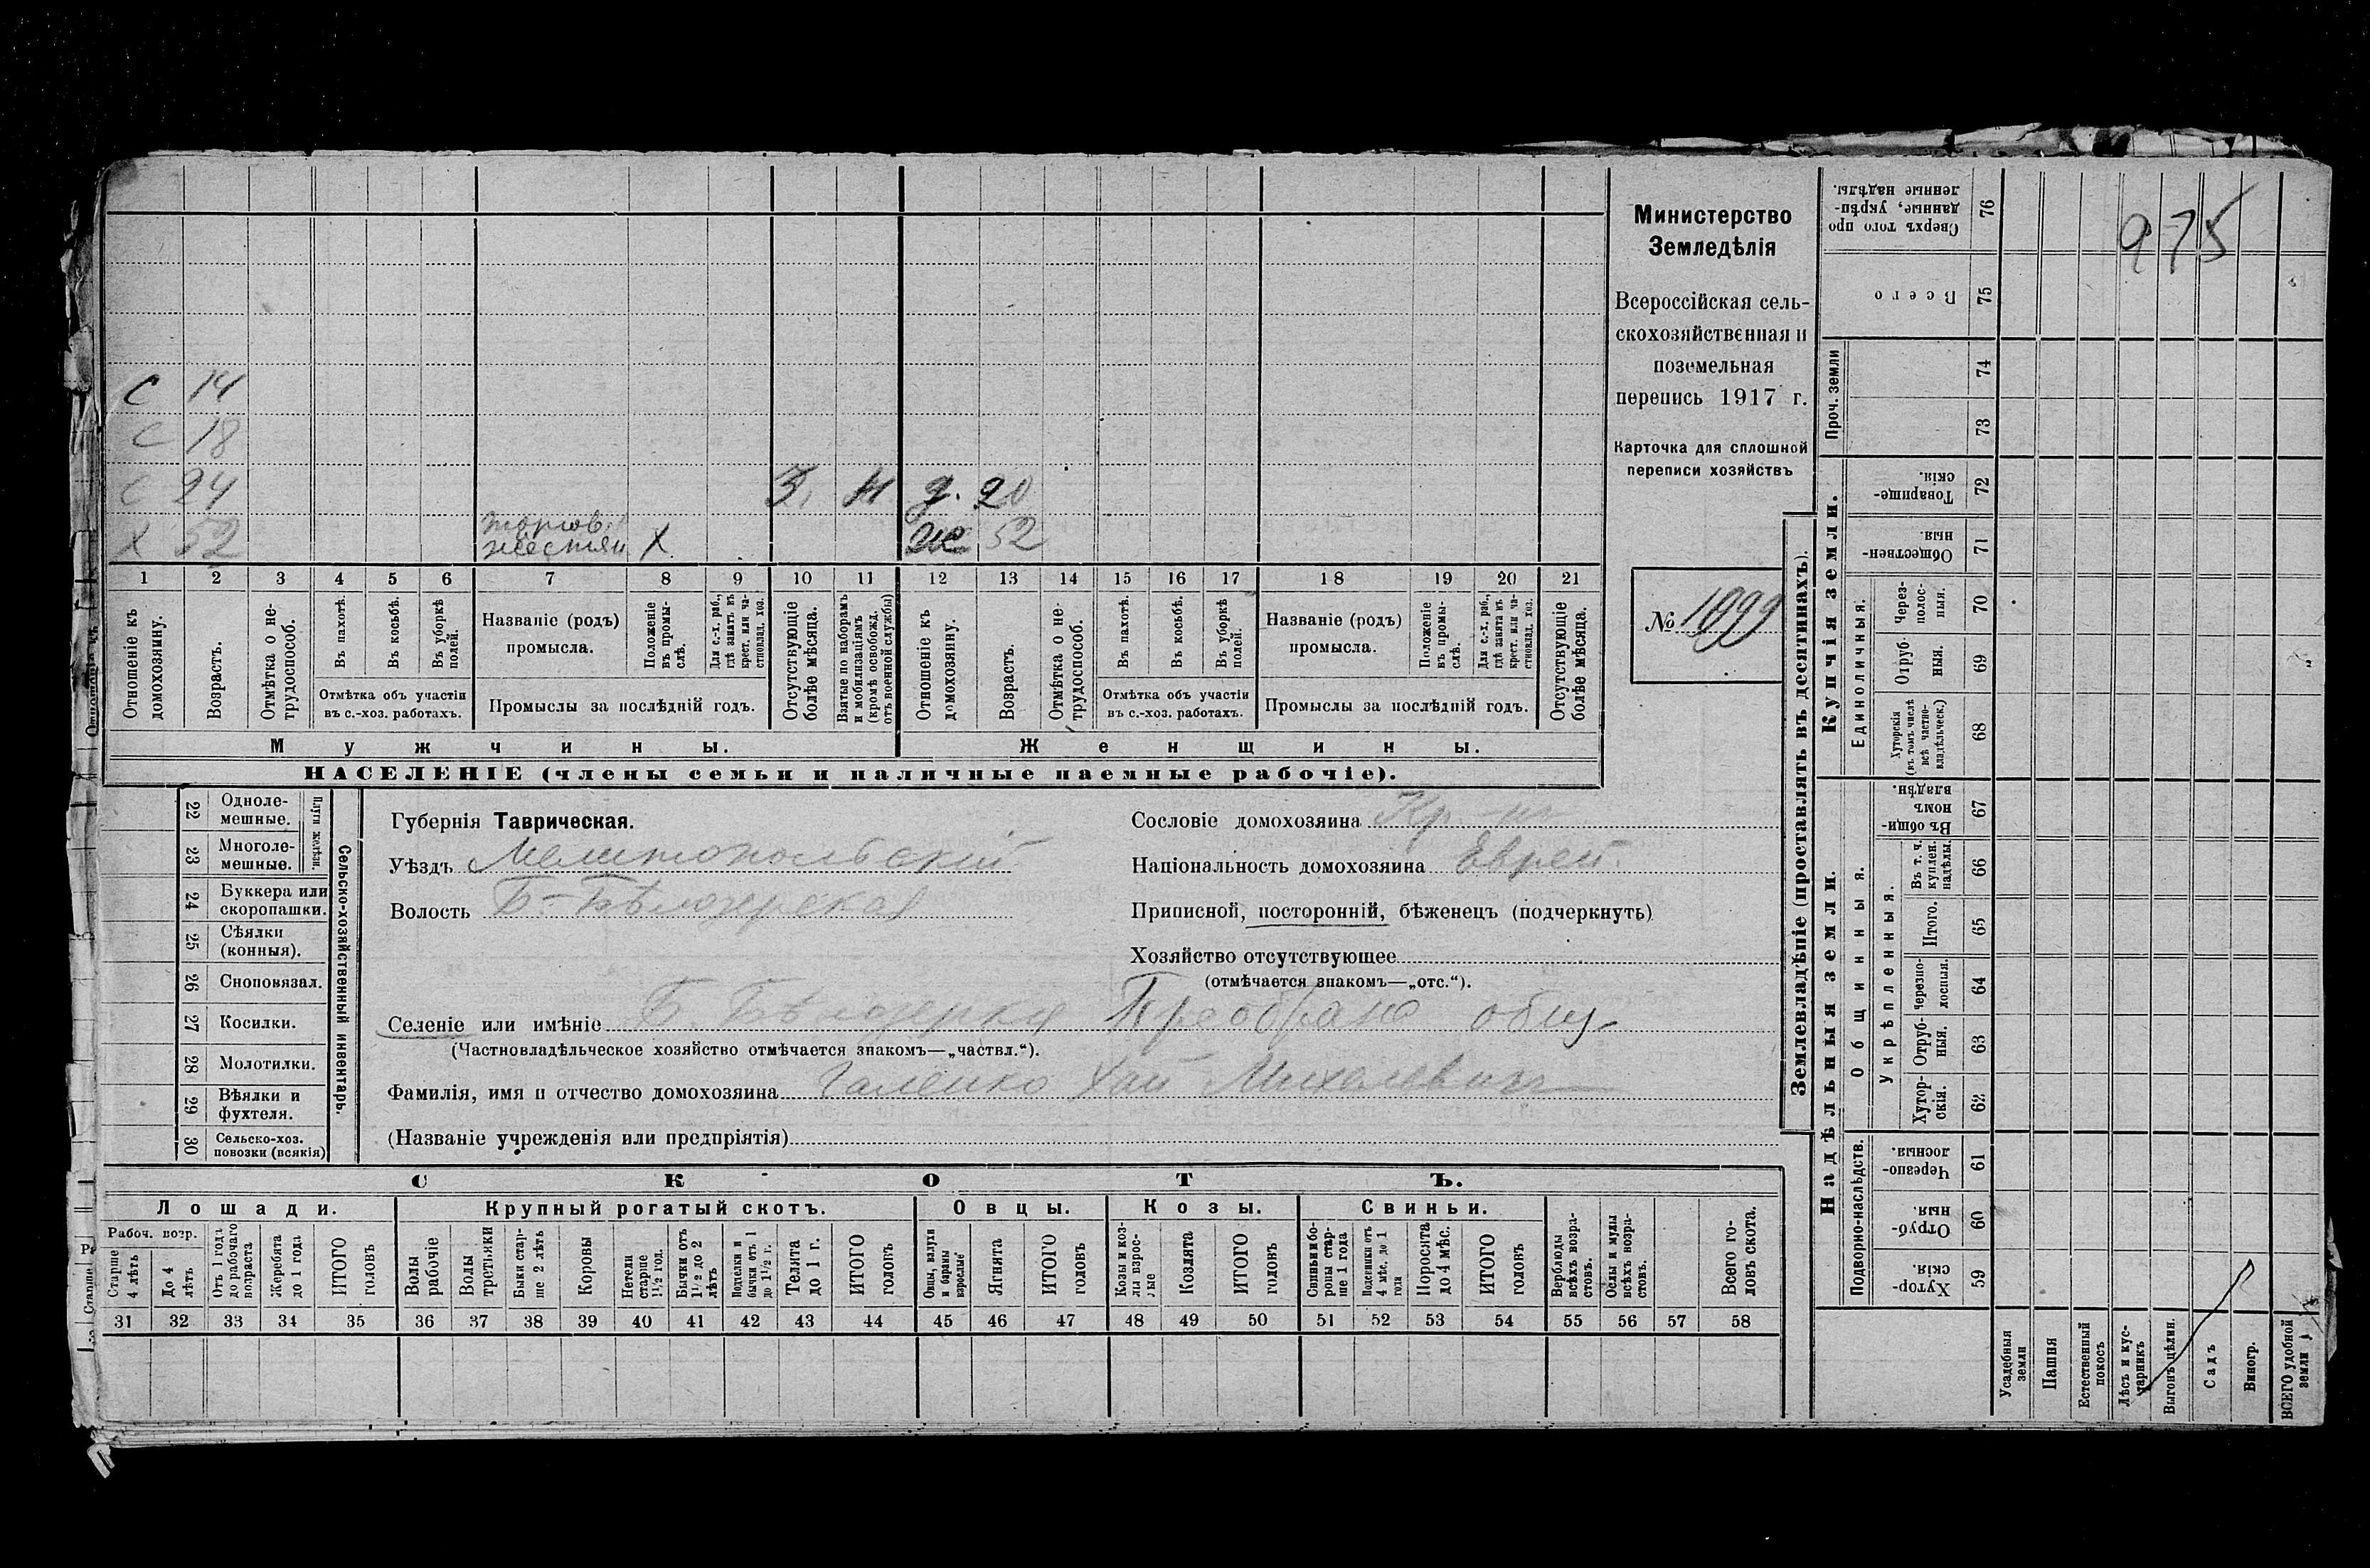 Министерство
Земледѣлія
Всероссійская сель-
скохозяйственная и
поземельная
перепись 1917 г.
Карточка для сплошной
переписи хозяйствъ
№ 1099
975
с 14
с 18
с 24 д. 20
х 52 х же 52
1 2 3 4 5 6 7 8 9 10 11 12 13 14 15 16 17 18 19 20 21
Отношеніе къ домохозяину.
Возрастъ.
Отмѣтка о не-
трудоспособ.
Въ пахотѣ.
Въ косьбѣ.
Въ уборкѣ полей.
Отмѣтка объ участіи
въ с.-хоз. работахъ.
Названіе (родъ)
промысла.
Положеніе въ промы-
слѣ.
Для с.-х. раб.,
гдѣ занятъ въ
крест. или ча-
стновлад. хоз.
Промыслы за послѣдній годъ.
Отсутствующіе
болѣе мѣсяца.
Взятые по наборамъ
и мобилизаціямъ
(кромѣ освобожд.
отъ военной службы)
Отношеніе къ
домохозяину.
Возрастъ.
Отмѣтка о не-
трудоспособ.
Въ пахотѣ.
Въ косьбѣ.
Въ уборкѣ
полей.
Отмѣтка объ участіи
въ с.-хоз. работахъ.
Названіе (родъ)
промысла.
Положеніе
въ промы-
слѣ.
Для с.-х. раб.,
гдѣ занята въ
крест. или ча-
стновлад. хоз.
Промыслы за послѣдній годъ.
Отсутствующіе
болѣе мѣсяца.
Мужчины.
Женщины.
НАСЕЛЕНІЕ (члены семьи и наличные наемные рабочіе).
Сельско-хозяйственный инвентарь.
Плуги желѣзн.
22 Одноле-
мешные.
23 Многоле-
мешные.
24 Буккера или
скоропашки.
25 Сѣялки
(конныя).
26 Сноповязал.
27 Косилки.
28 Молотилки.
29 Вѣялки и
фухтеля.
30 Сельско-хоз.
повозки (всякія)
Губернія Таврическая.
Уѣздъ Мелитопольскій
Волость Б-Бѣлозерская
Сословіе домохозяина Кр-нъ
Національность домохозяина Еврей.
Приписной, посторонній, бѣженецъ (подчеркнуть)
Хозяйство отсутствующее
(отмѣчается знакомъ—„отс.“).
Селеніе или имѣніе Б. Бѣлозерка Преображ общ.
(Частновладѣльческое хозяйство отмѣчается знакомъ—„частвл.“).
Фамилія, имя и отчество домохозяина
(Названіе учрежденія или предпріятія)
СКОТЪ.
Лошади.
Рабоч. возр.
Старше
4 лѣтъ
До 4
лѣтъ
Отъ 1 года
до рабочаго
возраста
Жеребята
до 1 года
ИТОГО
головъ
Крупный рогатый скотъ.
Волы
рабочіе
Волы
третьяки
Быки стар-
ше 2 лѣтъ
Коровы
Нетели
старше
1½ год.
Бычки отъ
1½ до 2
лѣтъ
Подтелки и
бычки отъ 1
до 1½ г.
Телята
до 1 г.
ИТОГО
головъ
Овцы.
Овцы, валухи
и бараны
взрослые
Ягнята
ИТОГО
головъ
Козы.
Козы и коз-
лы взрос-
лые
Козлята
ИТОГО
головъ
Свиньи.
Свиньи и бо-
ровы стар-
ше 1 года
Подсвинки отъ
4 мѣс. до 1
года
Поросята
до 4 мѣс.
ИТОГО
головъ
Верблюды
всѣхъ возра-
стовъ.
Ослы и мулы
всѣхъ возра-
стовъ.
Всего го-
ловъ скота.
31 32 33 34 35 36 37 38 39 40 41 42 43 44 45 46 47 48 49 50 51 52 53 54 55 56 57 58
Землевладѣніе (проставлять въ десятинахъ).
Надѣльныя земли.
Купчія земли.
Проч. земли
Подворно-наслѣдств.
Общинныя.
Укрѣпленныя.
Единоличныя.
76 Сверхъ того про
данные, укрѣп-
ленные надѣлы.
75 Всего
74
73
72 Товарище-
скія.
71 Обществен-
ныя.
70 Через-
полос-
ныя.
69 Отруб-
ныя.
68 Хуторскія
(въ томъ числѣ
всѣ частно-
владѣльческ.)
67 Въ общи-
номъ
владѣн.
66 Въ т. ч.
куплен.
надѣлы.
65 Итого.
64 Черезпо-
лосныя.
63 Отруб-
ныя.
62 Хутор-
скія.
61 Черезпо-
лосныя.
60 Отруб-
ныя.
59 Хутор-
скія.
Усадебныя
земли
Пашня
Естественный
покосъ
Лѣсъ и кус-
тарникъ
Выгонъ цѣлин.
Садъ
Виногр.
ВСЕГО удобной
земли